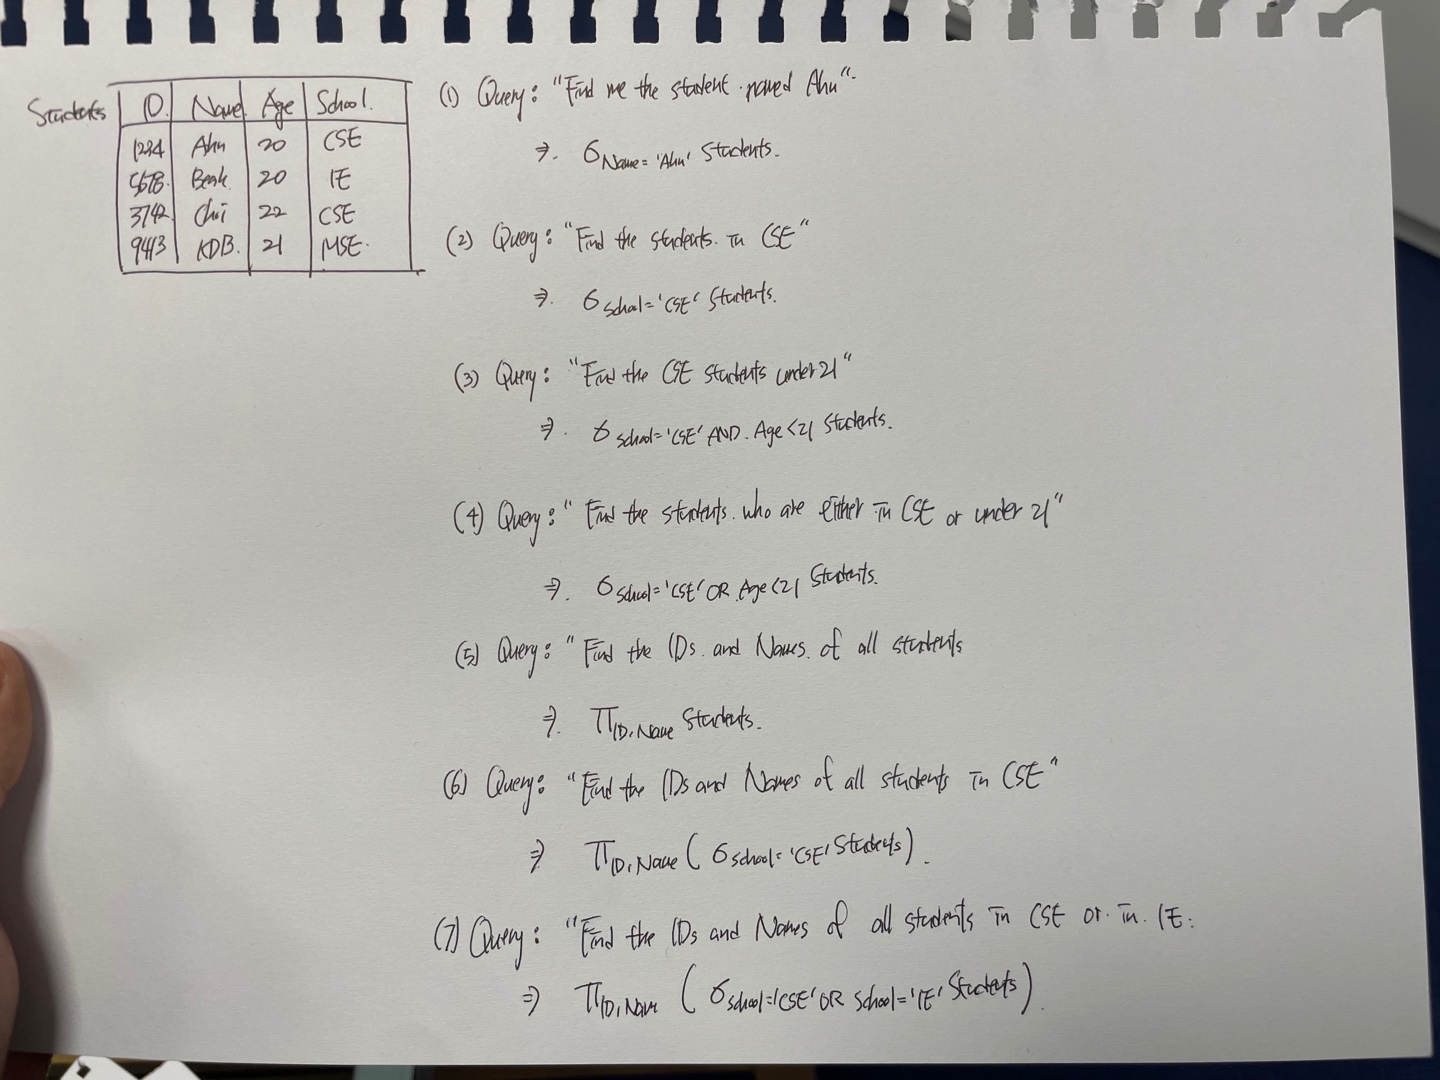 Students
ID. Name Age School.
1234 Ahn 20 CSE
5678. Beak. 20 IE
3742 Choi 22 CSE
9413 KDB. 21 MSE.
(1) Query: "Find me the student named Ahn".
⇒. σ Name='Ahn' Students.
(2) Query: "Find the students. in CSE"
⇒. σ School='CSE' Students.
(3) Query: "Find the CSE students under 21"
⇒. σ School='CSE' AND. Age<21 Students.
(4) Query: "Find the students. who are either in CSE or under 21"
⇒. σ School='CSE' OR. Age<21 Students.
(5) Query: "Find the IDs. and Names. of all students
⇒. π ID, Name Students.
(6) Query: "Find the IDs and Names of all students in CSE"
⇒ π ID, Name (σ School='CSE' Students).
(7) Query: "Find the IDs and Names of all students in CSE or. in. IE:
⇒ π ID, Name (σ School='CSE' OR School='IE' Students).